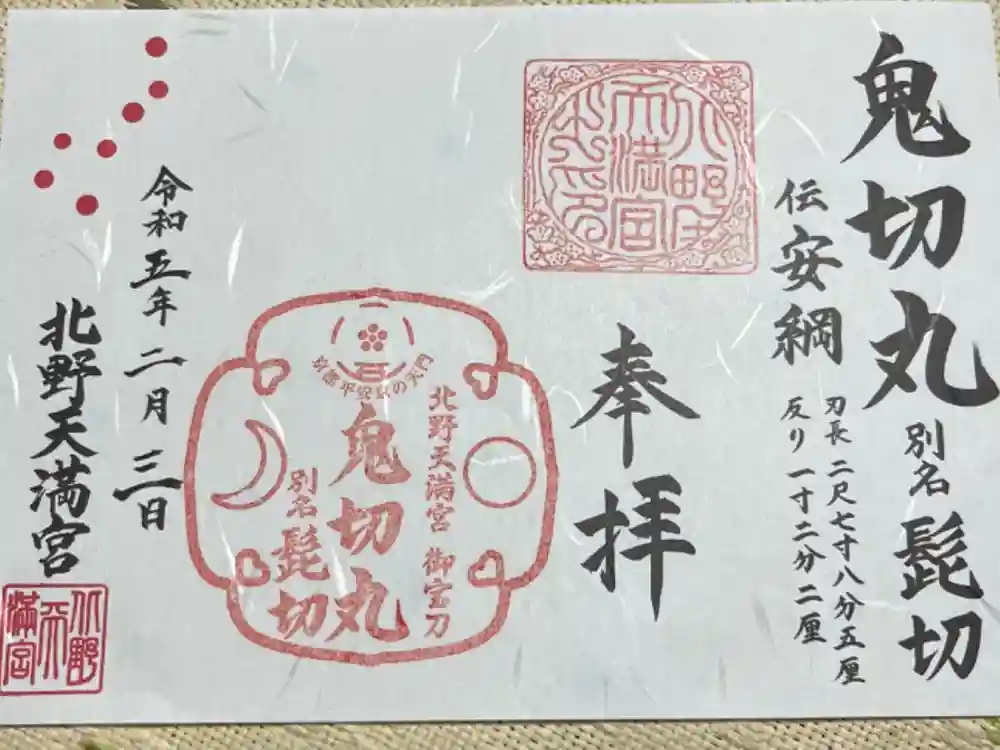 鬼切丸 別名 髭切
伝安綱
刃長 二尺七寸八分五厘
反り 一寸二分二厘
奉拝
北野天満宮 御宝刀
鬼切丸
別名 髭切
令和五年 二月 三日
北野天満宮
北野天満宮